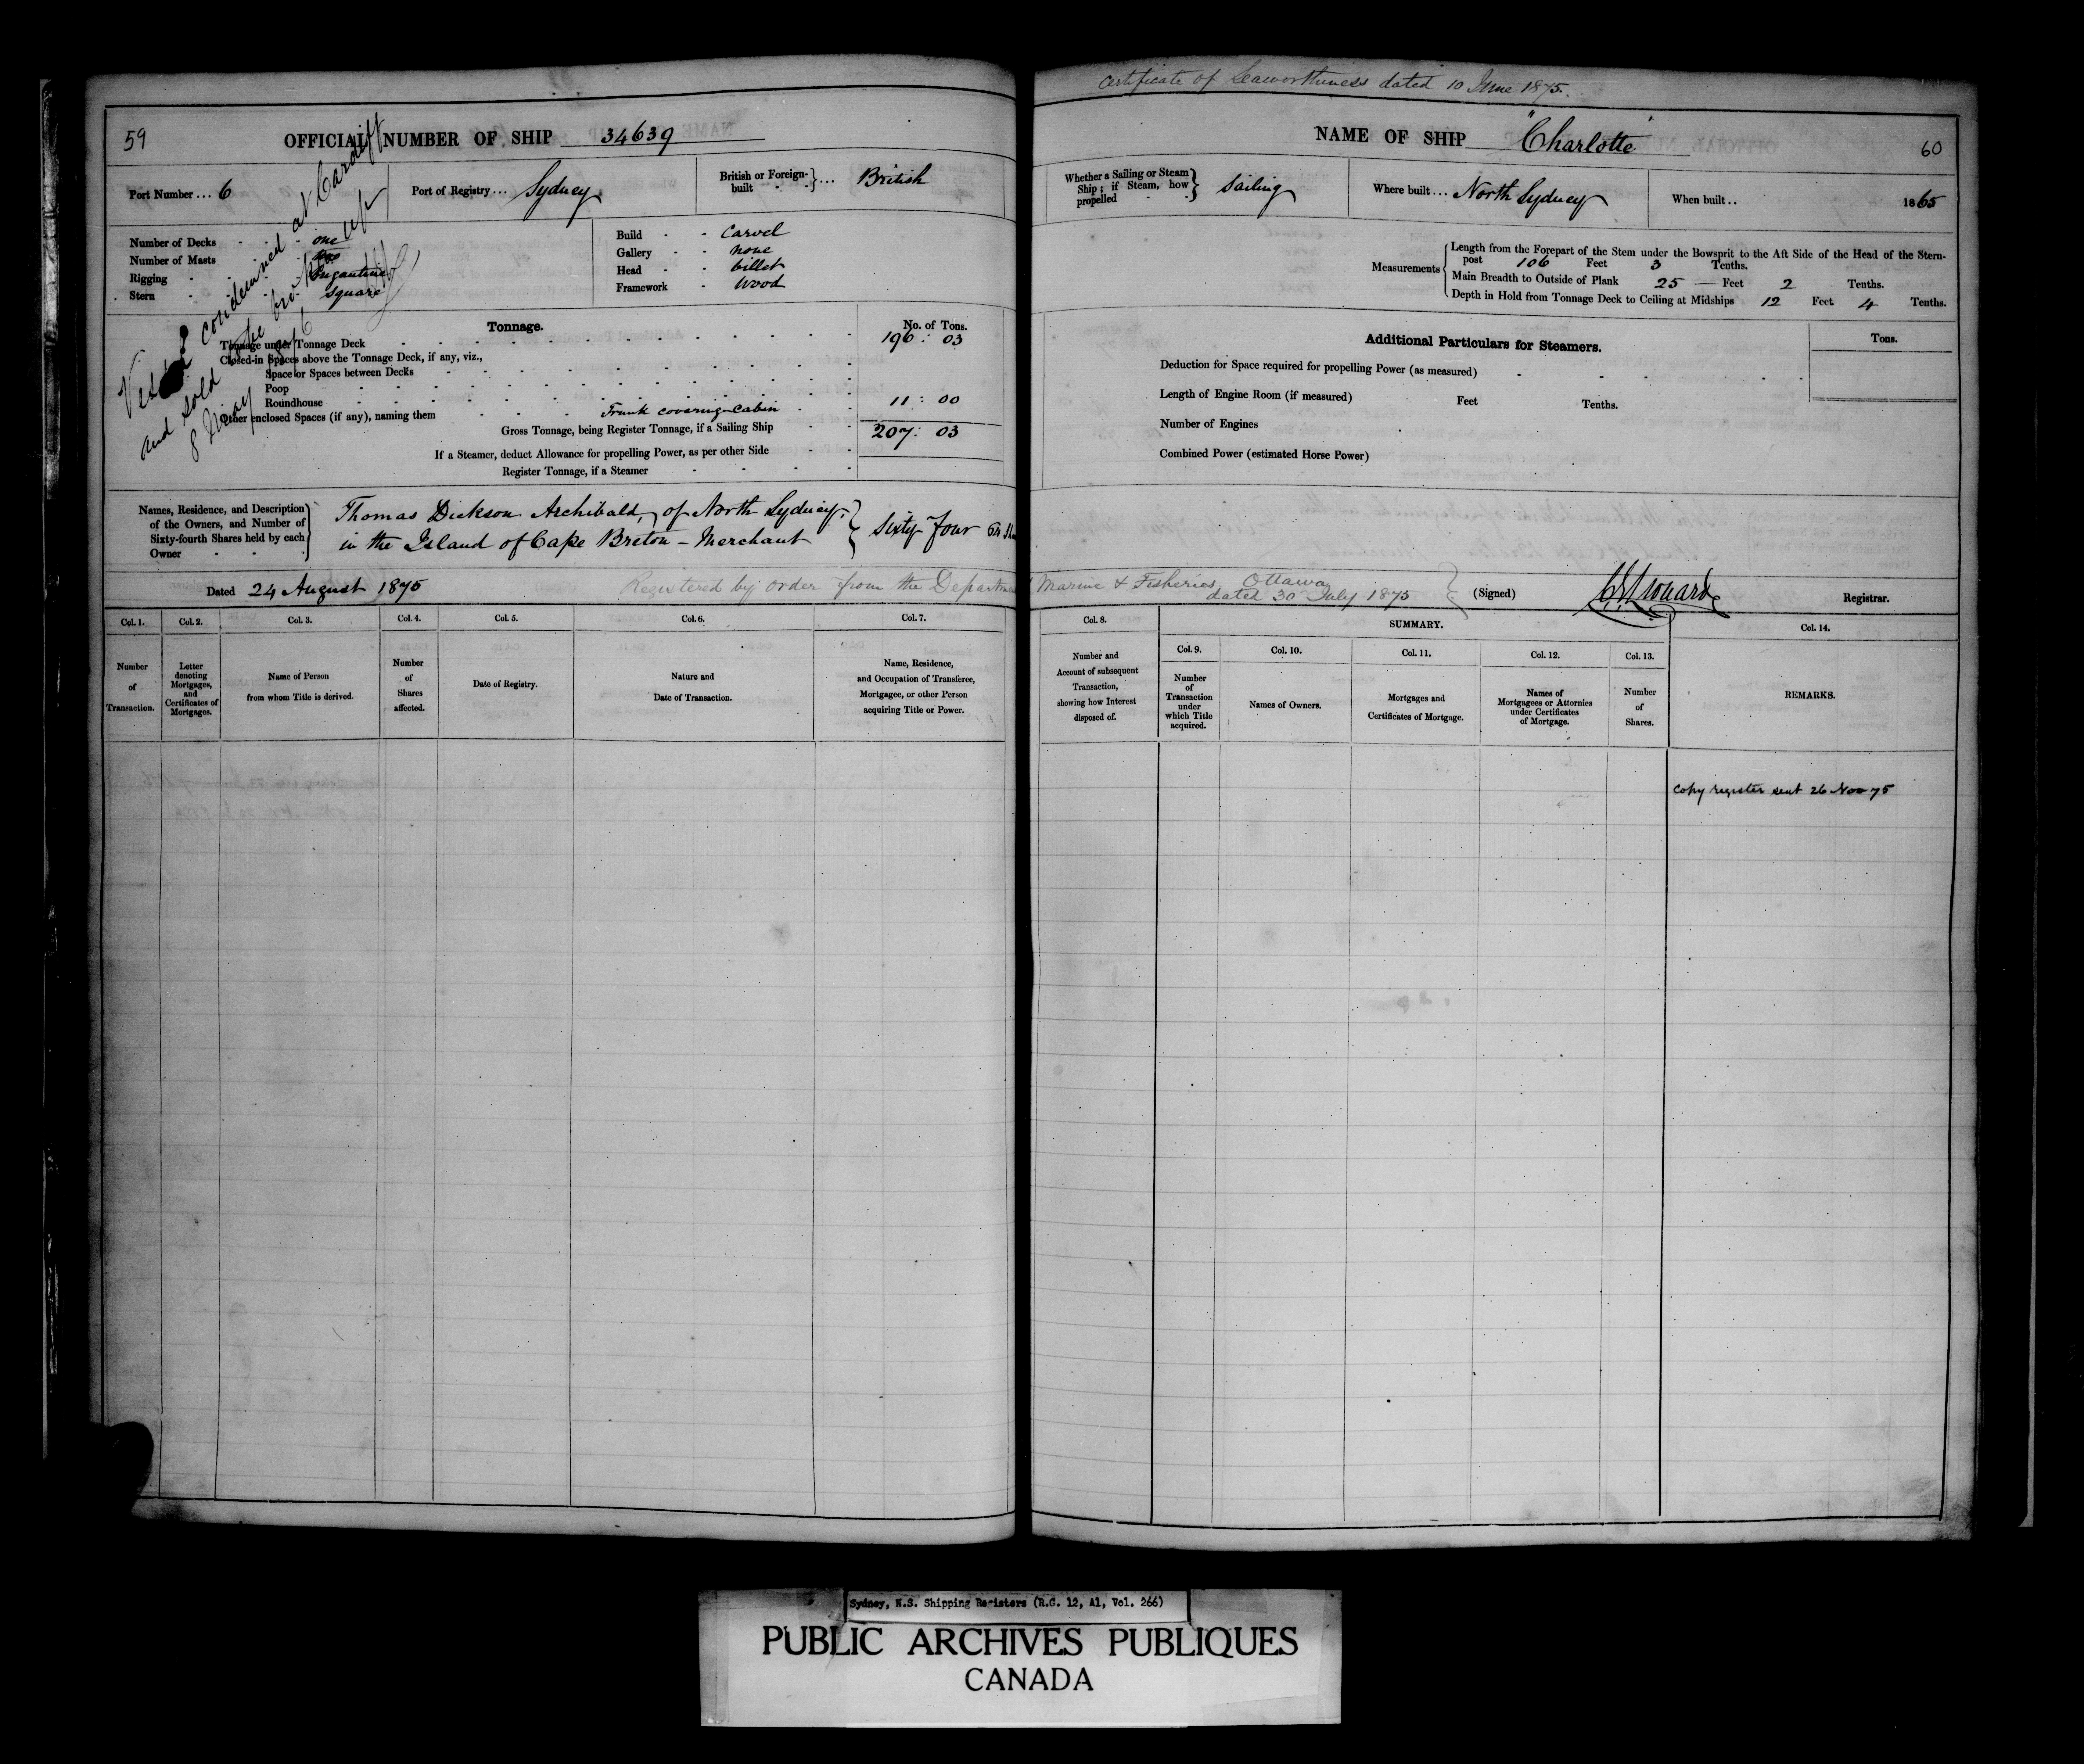 59
OFFICIAL NUMBER OF SHIP 34639
Port Number ... 6
Port of Registry ... Sydney
British or Foreign-built ... British
Number of Decks - - one
Number of Masts - two
Rigging - Brigantine
Stern - square
Build - - Carvel
Gallery - - none
Head - - billet
Framework - wood
Vessel condemned at Cardiff
and sold to be broken up
8 May 1876
Tonnage.
No. of Tons.
Tonnage under Tonnage Deck 196 : 03
Closed-in Spaces above the Tonnage Deck, if any, viz.,
Space or Spaces between Decks
Poop
Roundhouse
Other enclosed Spaces (if any), naming them Trunk covering cabin 11 : 00
Gross Tonnage, being Register Tonnage, if a Sailing Ship 207 : 03
If a Steamer, deduct Allowance for propelling Power, as per other Side
Register Tonnage, if a Steamer
Names, Residence, and Description
of the Owners, and Number of
Sixty-fourth Shares held by each
Owner
Thomas Dickson Archibald, of North Sydney
in the Island of Cape Breton - Merchant
Sixty Four 64
Dated 24 August 1875
Registered by order from the Department
Col. 1.
Number
of
Transaction.
Col. 2.
Letter
denoting
Mortgages,
and
Certificates of
Mortgages.
Col. 3.
Name of Person
from whom Title is derived.
Col. 4.
Number
of
Shares
affected.
Col. 5.
Date of Registry.
Col. 6.
Nature and
Date of Transaction.
Col. 7.
Name, Residence,
and Occupation of Transferee,
Mortgagee, or other Person
acquiring Title or Power.
Certificate of Seaworthiness dated 10 June 1875.
NAME OF SHIP "Charlotte"
60
Whether a Sailing or Steam
Ship; if Steam, how
propelled
Sailing
Where built ... North Sydney
When built .. 1865
Measurements
Length from the Forepart of the Stem under the Bowsprit to the Aft Side of the Head of the Stern-
post 106 Feet 3 Tenths.
Main Breadth to Outside of Plank 25 — Feet 2 Tenths.
Depth in Hold from Tonnage Deck to Ceiling at Midships 12 Feet 4 Tenths.
Additional Particulars for Steamers.
Tons.
Deduction for Space required for propelling Power (as measured)
Length of Engine Room (if measured) Feet Tenths.
Number of Engines
Combined Power (estimated Horse Power)
Marine & Fisheries, Ottawa
dated 30 July 1875
(Signed)
Registrar.
Col. 8.
Number and
Account of subsequent
Transaction,
showing how Interest
disposed of.
SUMMARY.
Col. 9.
Number
of
Transaction
under
which Title
acquired.
Col. 10.
Names of Owners.
Col. 11.
Mortgages and
Certificates of Mortgage.
Col. 12.
Names of
Mortgagees or Attornies
under Certificates
of Mortgage.
Col. 13.
Number
of
Shares.
Col. 14.
REMARKS.
Copy register sent 26 Nov 75
Sydney, N.S. Shipping Registers (R.G. 12, A1, Vol. 266)
PUBLIC ARCHIVES PUBLIQUES
CANADA